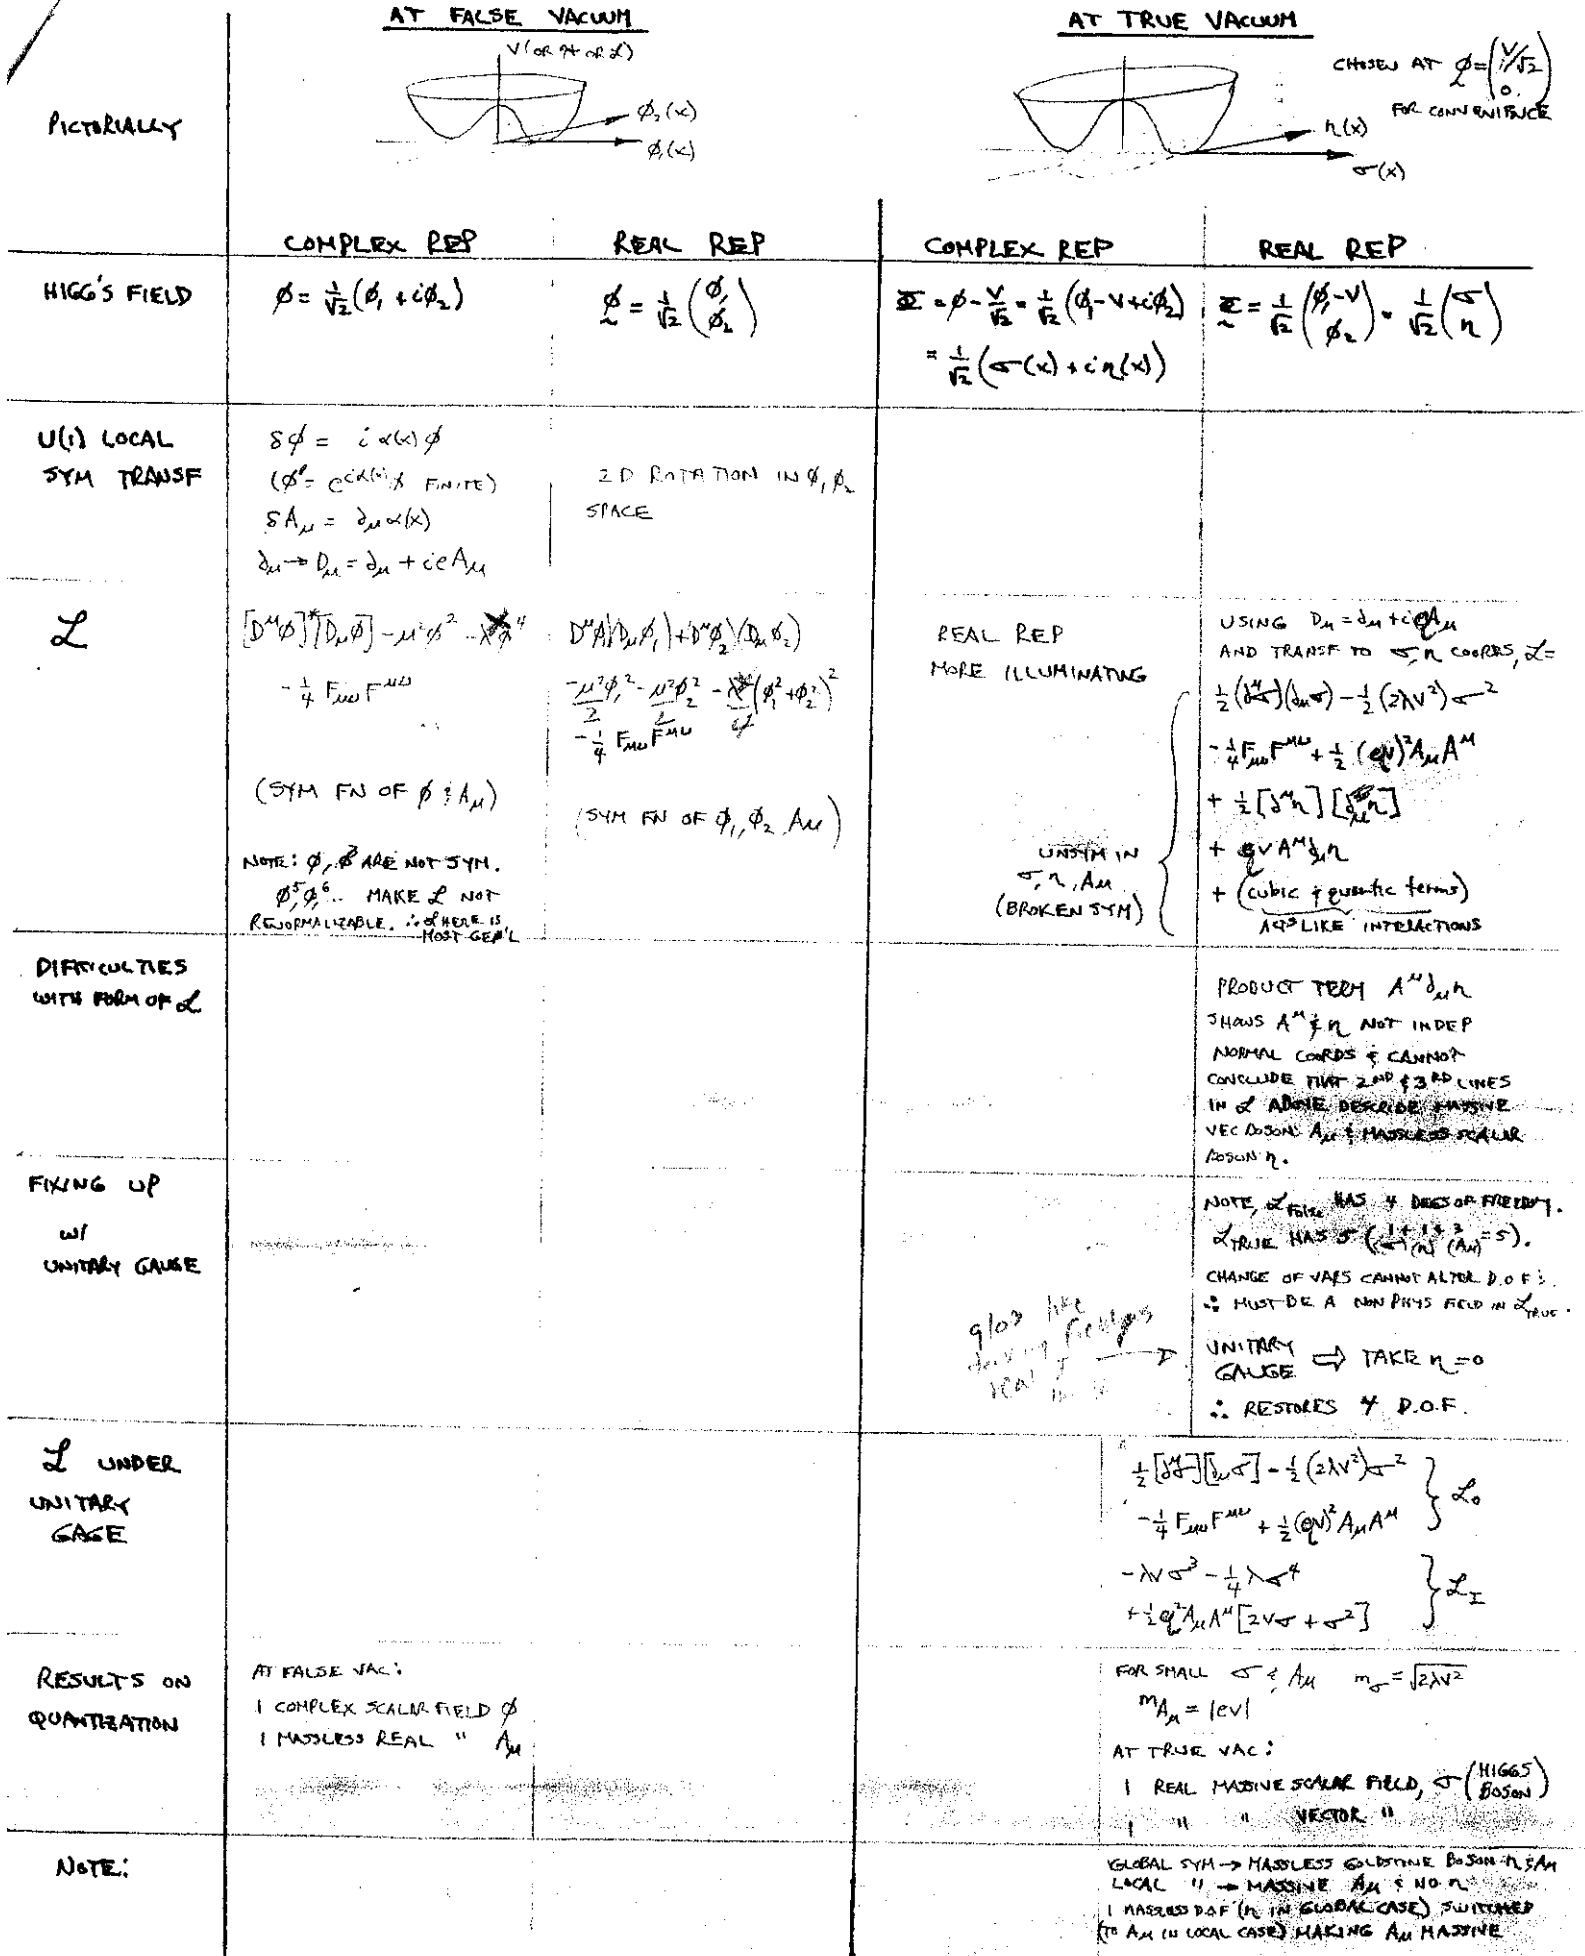 AT FALSE VACUUM
AT TRUE VACUUM
PICTORIALLY
V (OR H OR ℒ)
ϕ₂(x)
ϕ₁(x)
CHOSEN AT ϕ = (V/√2
0)
FOR CONVENIENCE
η(x)
σ(x)
COMPLEX REP
REAL REP
COMPLEX REP
REAL REP
HIGG'S FIELD
ϕ = 1/√2 (ϕ₁ + iϕ₂)
ϕ = 1/√2 (ϕ₁
ϕ₂)
Φ = ϕ - V/√2 = 1/√2 (ϕ₁ - V + iϕ₂)
= 1/√2 (σ(x) + iη(x))
Φ = 1/√2 (ϕ₁-V
ϕ₂) = 1/√2 (σ
η)
U(1) LOCAL
SYM TRANSF
δϕ = iα(x)ϕ
(ϕ' = e^{iα(x)}ϕ FINITE)
δA_μ = ∂_μ α(x)
∂_μ → D_μ = ∂_μ + ieA_μ
2D ROTATION IN ϕ₁ ϕ₂
SPACE
ℒ
[D^μϕ]*[D_μϕ] - μ²ϕ² - λϕ⁴
-1/4 F_μν F^μν
(SYM FN OF ϕ & A_μ)
NOTE: ϕ, ϕ³ ARE NOT SYM.
ϕ⁵, ϕ⁶.. MAKE ℒ NOT
RENORMALIZABLE. ∴ ℒ HERE IS
MOST GEN'L
D^μϕ₁)(D_μϕ₁) + D^μϕ₂)(D_μϕ₂)
-μ²/2 ϕ₁² - μ²/2 ϕ₂² - λ/4 (ϕ₁² + ϕ₂²)²
-1/4 F_μν F^μν
(SYM FN OF ϕ₁, ϕ₂ A_μ)
REAL REP
MORE ILLUMINATING
UNSYM IN
σ, η, A_μ
(BROKEN SYM)
USING D_μ = ∂_μ + iqA_μ
AND TRANSF TO σ, η COORDS, ℒ =
1/2 (∂^μσ)(∂_μσ) - 1/2 (2λV²)σ²
-1/4 F_μν F^μν + 1/2 (qV)² A_μ A^μ
+ 1/2 [∂^μη][∂_μη]
+ qV A^μ ∂_μη
+ (cubic & quartic terms)
ACTS LIKE INTERACTIONS
DIFFICULTIES
WITH FORM OF ℒ
PRODUCT TERM A^μ∂_μη
SHOWS A^μ & η NOT INDEP
NORMAL COORDS & CANNOT
CONCLUDE THAT 2ND & 3RD LINES
IN ℒ ABOVE DESCRIBE MASSIVE
VEC BOSON A_μ & MASSLESS SCALAR
BOSON η.
FIXING UP
w/
UNITARY GAUGE
NOTE, ℒ_FALSE HAS 4 DEGS OF FREEDM.
ℒ_TRUE HAS 5 (1 + 1 + 3 = 5).
(σ) (η) (A_μ)
CHANGE OF VARS CANNOT ALTER D.O.F.
∴ MUST BE A NON PHYS FIELD IN ℒ_TRUE.
UNITARY
GAUGE ⇒ TAKE η = 0
∴ RESTORES 4 D.O.F.
ℒ UNDER
UNITARY
GAGE
1/2 [∂^μσ][∂_μσ] - 1/2 (2λV²)σ²
-1/4 F_μν F^μν + 1/2 (qV)² A_μ A^μ } ℒ₀
-λVσ³ - 1/4 λσ⁴
+ 1/2 q² A_μ A^μ [2Vσ + σ²] } ℒ_I
RESULTS ON
QUANTIZATION
AT FALSE VAC:
1 COMPLEX SCALAR FIELD ϕ
1 MASSLESS REAL " A_μ
FOR SMALL σ & A_μ m_σ = √2λV²
m_{A_μ} = |eV|
AT TRUE VAC:
1 REAL MASSIVE SCALAR FIELD, σ (HIGGS
BOSON)
1 " " VECTOR "
NOTE:
GLOBAL SYM → MASSLESS GOLDSTINE BOSON η & A_μ
LOCAL " → MASSIVE A_μ & NO η
1 MASSLESS D.O.F (η IN GLOBAL CASE) SWITCHED
(TO A_μ IN LOCAL CASE) MAKING A_μ MASSIVE